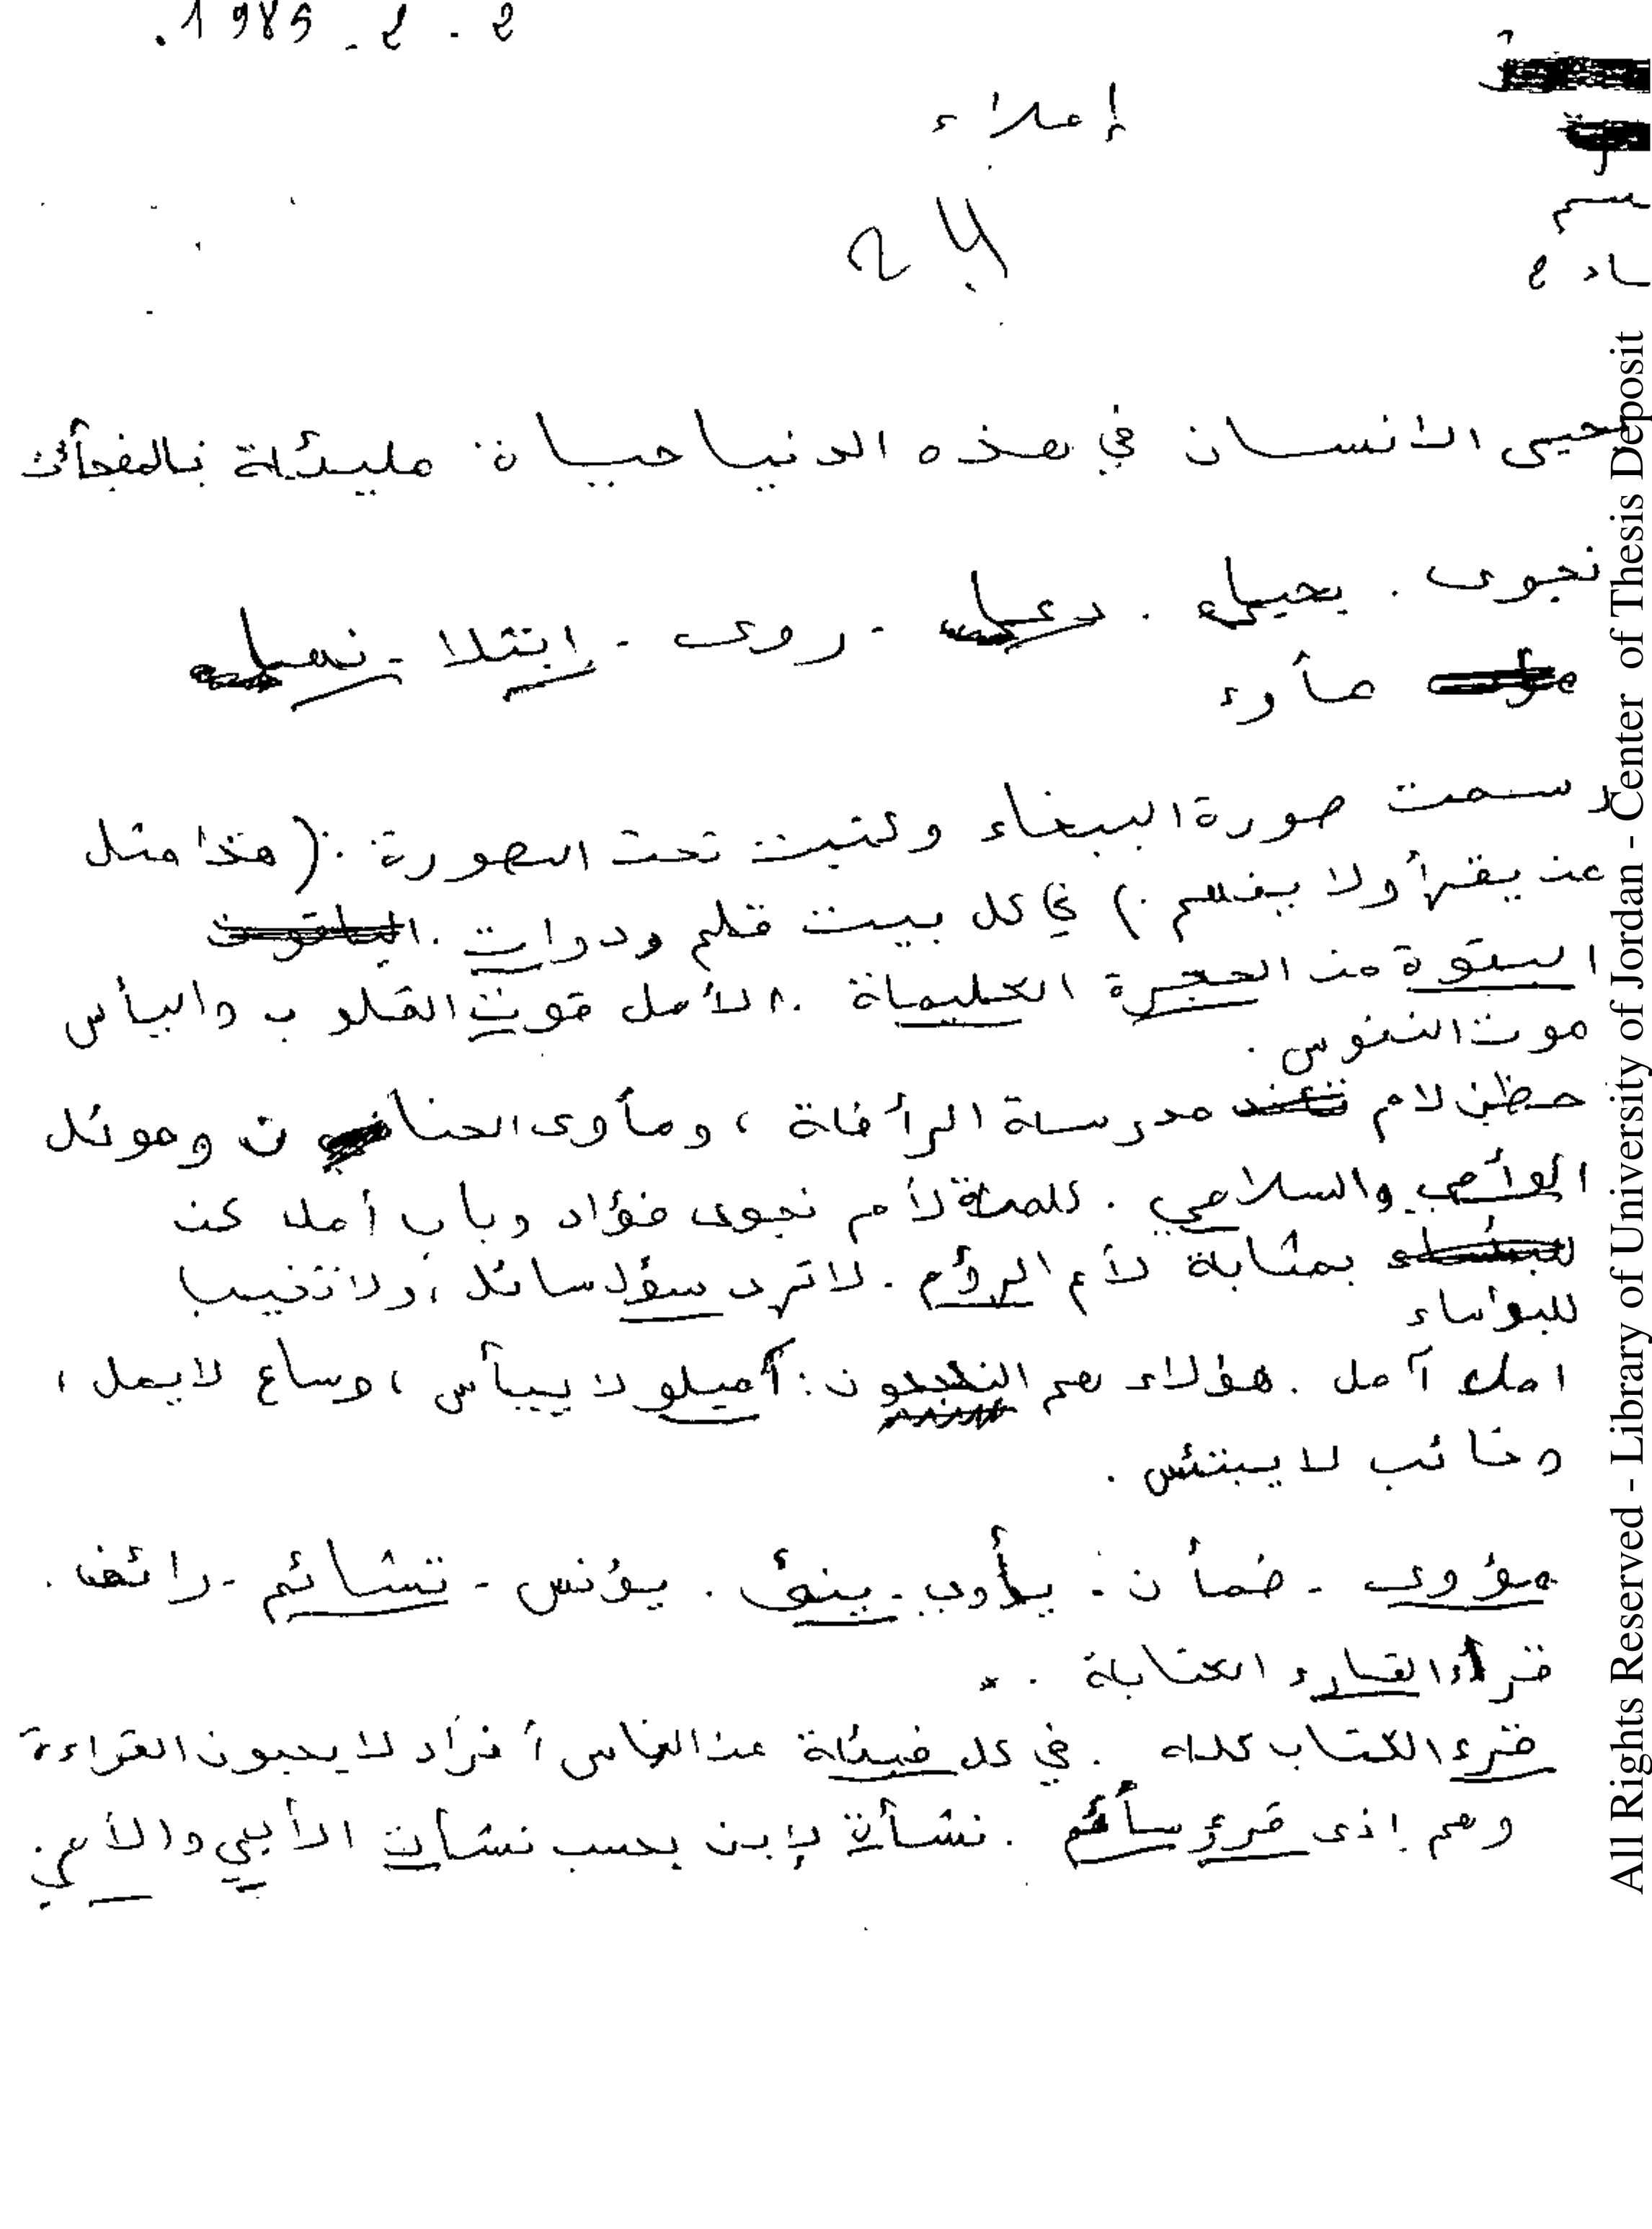 2 - 2 - 1985.
إملاء
24
يحيى الانسان في هذه الدنيا حياة مليئلة بالمفجأت
نجوى . يحيا . دعا - روى - إبتلا - نهيا
مأوء
رسمت صورة الببغاء وكتبت تحت الصورة : (هذا مثل
من يقرأ ولا يفهم .) في كل بيت قلم ودوات .
البيتوة من الحجرة الكليماة . الأمل قوت القلوب واليأس
موت النفوس .
حظن لام مدرسة الرأفاة ، ومأوى الحنان وموئل
الوأمي والسلامي . كلمة لأم نجوى فؤاد وباب أمل كن
بمثابة لأم الرؤم . لاترد سؤل سائل ، ولا تخيب
للبؤساء
امل آمل . هؤلاء هم الن‍جحون : آميلو لا ييأس ، وساع لايمل ،
وخائب لا يبتئس .
مؤوى - ضمأن - يأوب - ينئ . يؤنس - تشائم - رائف .
قرأ القارء الكتابة .
قرء الكتاب كله . في كل فيئلة من الناس أفراد لا يحبون القراءة
وهم إذى قرئ سأئم . نشأة لإبن بحسب نشأت الأبي والأمي .
All Rights Reserved - Library of University of Jordan - Center of Thesis Deposit